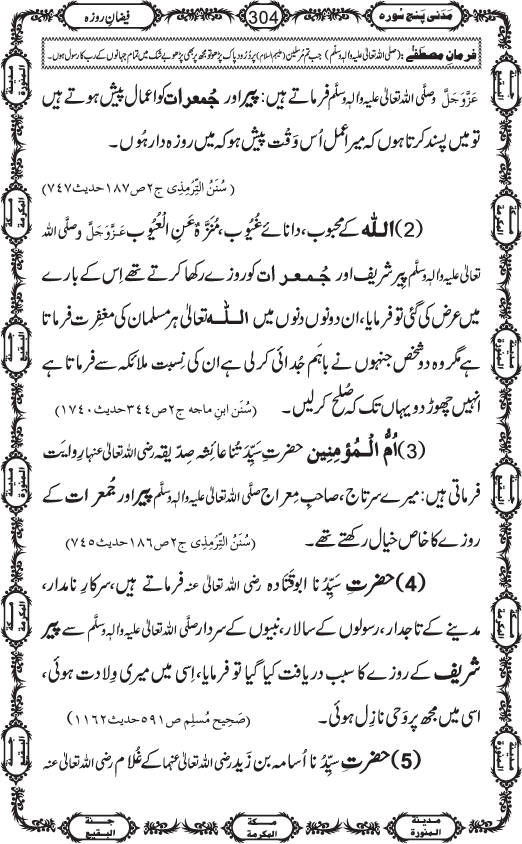 مَدَنی پَنج سُورہ
304
فیضانِ روزہ
فرمانِ مصطَفٰے :(صلی اللہ تعالیٰ علیہ والہٖ وسلّم) جب تم مُرسَلین (علیہم السلام) پر دُرُودِ پاک پڑھو تو مجھ پر بھی پڑھو بے شک میں تمام جہانوں کے رب کا رسول ہوں۔
عَزَّوَجَلَّ وصلَّی اللہ تعالیٰ علیہ واٰلہٖ وسلَّم فرماتے ہیں: پیر اور جُمعرات کو اعمال پیش ہوتے ہیں
تو میں پسند کرتا ہوں کہ میرا عمل اُس وَقت پیش ہو کہ میں روزہ دار ہوں۔
(سُنَنُ التِّرمِذِی ج۲ص۱۸۷حدیث۷۴۷)
(2) اللہ کے محبوب، دانائے غُیُوب، مُنَزَّہٌ عَنِ الْعُیُوب عَزَّوَجَلَّ وصلَّی اللہ
تعالیٰ علیہ واٰلہٖ وسلَّم پیر شریف اور جُمعرات کو روزے رکھا کرتے تھے اِس کے بارے
میں عرض کی گئی تو فرمایا، ان دونوں دنوں میں اللہ تعالیٰ ہر مسلمان کی مغفِرت فرماتا
ہے مگر وہ دو شخص جنہوں نے باہَم جُدائی کر لی ہے ان کی نسبت ملائکہ سے فرماتا ہے
انہیں چھوڑ دو یہاں تک کہ صُلح کر لیں۔ (سُنَن ابنِ ماجہ ج۲ص۳۴۴حدیث۱۷۴۰)
(3) اُمُّ الْمُؤمِنِین حضرتِ سیِّدَتُنا عائِشہ صِدّیقہ رضی اللہ تعالیٰ عنہا رِوایَت
فرماتی ہیں: میرے سرتاج، صاحبِ معراج صلَّی اللہ تعالیٰ علیہ واٰلہٖ وسلَّم پیر اور جُمعرات کے
روزے کا خاص خیال رکھتے تھے۔ (سُنَنُ التِّرمِذِی ج۲ص۱۸۶حدیث۷۴۵)
(4) حضرتِ سیِّدُنا ابو قَتَادہ رضی اللہ تعالیٰ عنہ فرماتے ہیں، سرکارِ نامدار،
مدینے کے تاجدار، رسولوں کے سالار، نبیوں کے سردار صلَّی اللہ تعالیٰ علیہ واٰلہٖ وسلَّم سے پیر
شریف کے روزے کا سبب دریافت کیا گیا تو فرمایا، اِسی میں میری وِلادت ہوئی،
اسی میں مجھ پر وَحی نازِل ہوئی۔ (صَحِیح مُسلِم ص۵۹۱حدیث۱۱۶۲)
(5) حضرتِ سیِّدُنا اُسامہ بن زَید رضی اللہ تعالیٰ عنہما کے غُلام رضی اللہ تعالیٰ عنہ
مدینۃ المنورۃ
مکۃ المکرمۃ
جنۃ البقیع
مدینۃ المنورۃ
مکۃ المکرمۃ
جنۃ البقیع
جنۃ البقیع
مکۃ المکرمۃ
مدینۃ المنورۃ
جنۃ البقیع
مکۃ المکرمۃ
مدینۃ المنورۃ
جنۃ البقیع
مکۃ المکرمۃ
مدینۃ المنورۃ